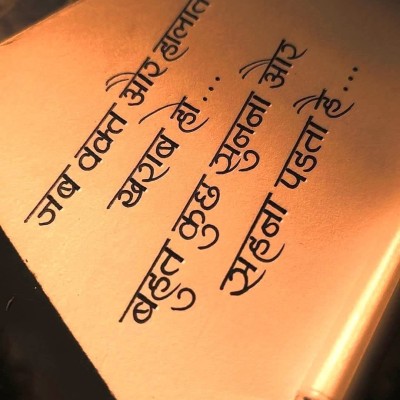 जब वक्त और हालात
खराब हो...
बहुत कुछ सुनना और
सहना पडता है...